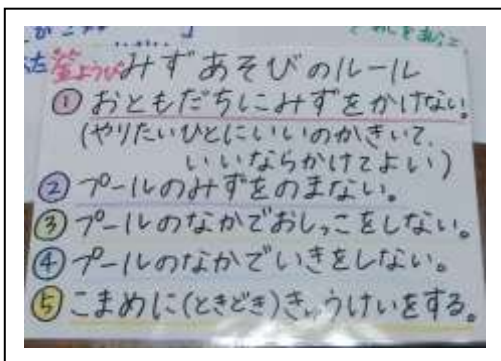 みずあそびのルール
① おともだちにみずをかけない。
(やりたいひとにいいのかきいて、
いいならかけてよい)
② プールのみずをのまない。
③ プールのなかでおしっこをしない。
④ プールのなかでいきをしない。
⑤ こまめに(ときどき)きゅうけいをする。